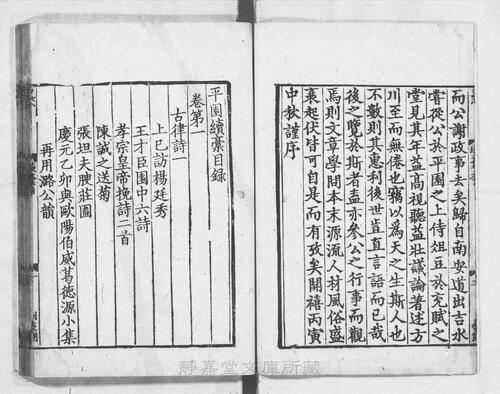 而公謝政事去矣歸自南安道出吉水
嘗從公於平園之上侍俎豆於充賦之
堂見其年益高視聽益壯議論著述方
川至而無倦也竊以爲天之生斯人也
不數則其惠利後世豈直言語而已哉
後之覽於斯者盍亦參公之行事而觀
焉則文章學問本末源流人材風俗盛
衰起伏皆可自是而有攷矣開禧丙寅
中秋謹序
平園續稾目録
卷第一
古律詩一
上巳訪楊廷秀
王才臣園中六詩
孝宗皇帝挽詩二首
陳誠之送菊
張坦夫腴莊圖
慶元乙卯與歐陽伯威葛德源小集
再用潞公韻
靜嘉堂文庫所藏